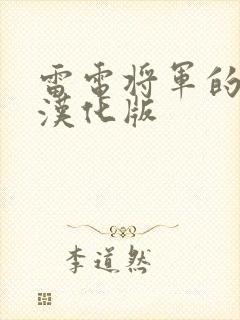 雷电将軍的
漢化版
李道然